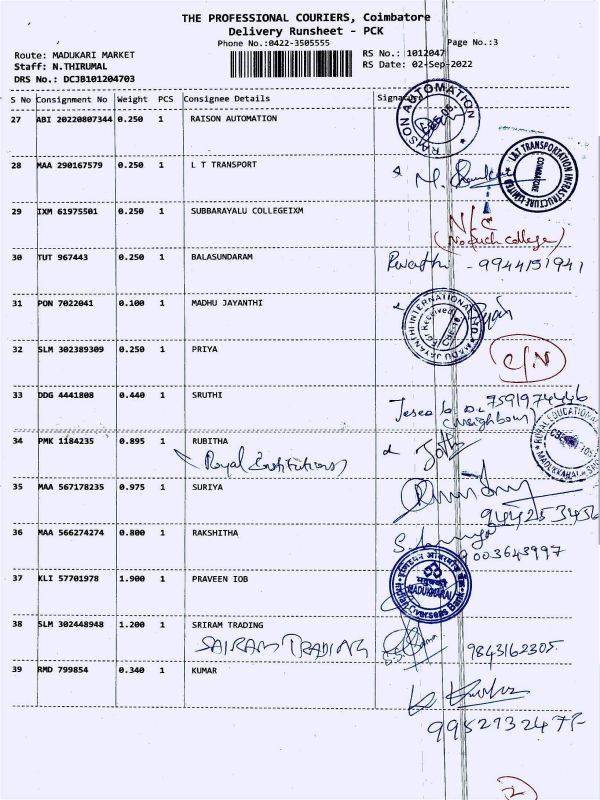 THE PROFESSIONAL COURIERS, Coimbatore
Delivery Runsheet - PCK
Phone No.:0422-3505555
Page No.:3
Route: MADUKARI MARKET
Staff: N.THIRUMAL
DRS No.: DCJB101204703
RS No.: 1012047
RS Date: 02-Sep-2022
S No Consignment No Weight PCS Consignee Details Signature
27 ABI 20220807344 0.250 1 RAISON AUTOMATION
RAISON AUTOMATION
28 MAA 290167579 0.250 1 L T TRANSPORT
L&T TRANSPORTATION INFRASTRUCTURE LIMITED
COIMBATORE
29 IXM 61975501 0.250 1 SUBBARAYALU COLLEGEIXM
N/C
(No such college)
30 TUT 967443 0.250 1 BALASUNDARAM
Revathi - 9944151941
31 PON 7022041 0.100 1 MADHU JAYANTHI
MADHU JAYANTHI INTERNATIONAL
32 SLM 302389309 0.250 1 PRIYA
33 DDG 4441808 0.440 1 SRUTHI
7591974446
(Neighbour)
34 PMK 1184235 0.895 1 RUBITHA
Royal Institutions
ROYAL EDUCATIONAL
MADUKKARAI
35 MAA 567178235 0.975 1 SURIYA
9442253456
36 MAA 566274274 0.800 1 RAKSHITHA
9003643997
37 KLI 57701978 1.900 1 PRAVEEN IOB
MADUKKARAI
Indian Overseas Bank
38 SLM 302448948 1.200 1 SRIRAM TRADING
SAIRAM TRADING
9843162305
39 RMD 799854 0.340 1 KUMAR